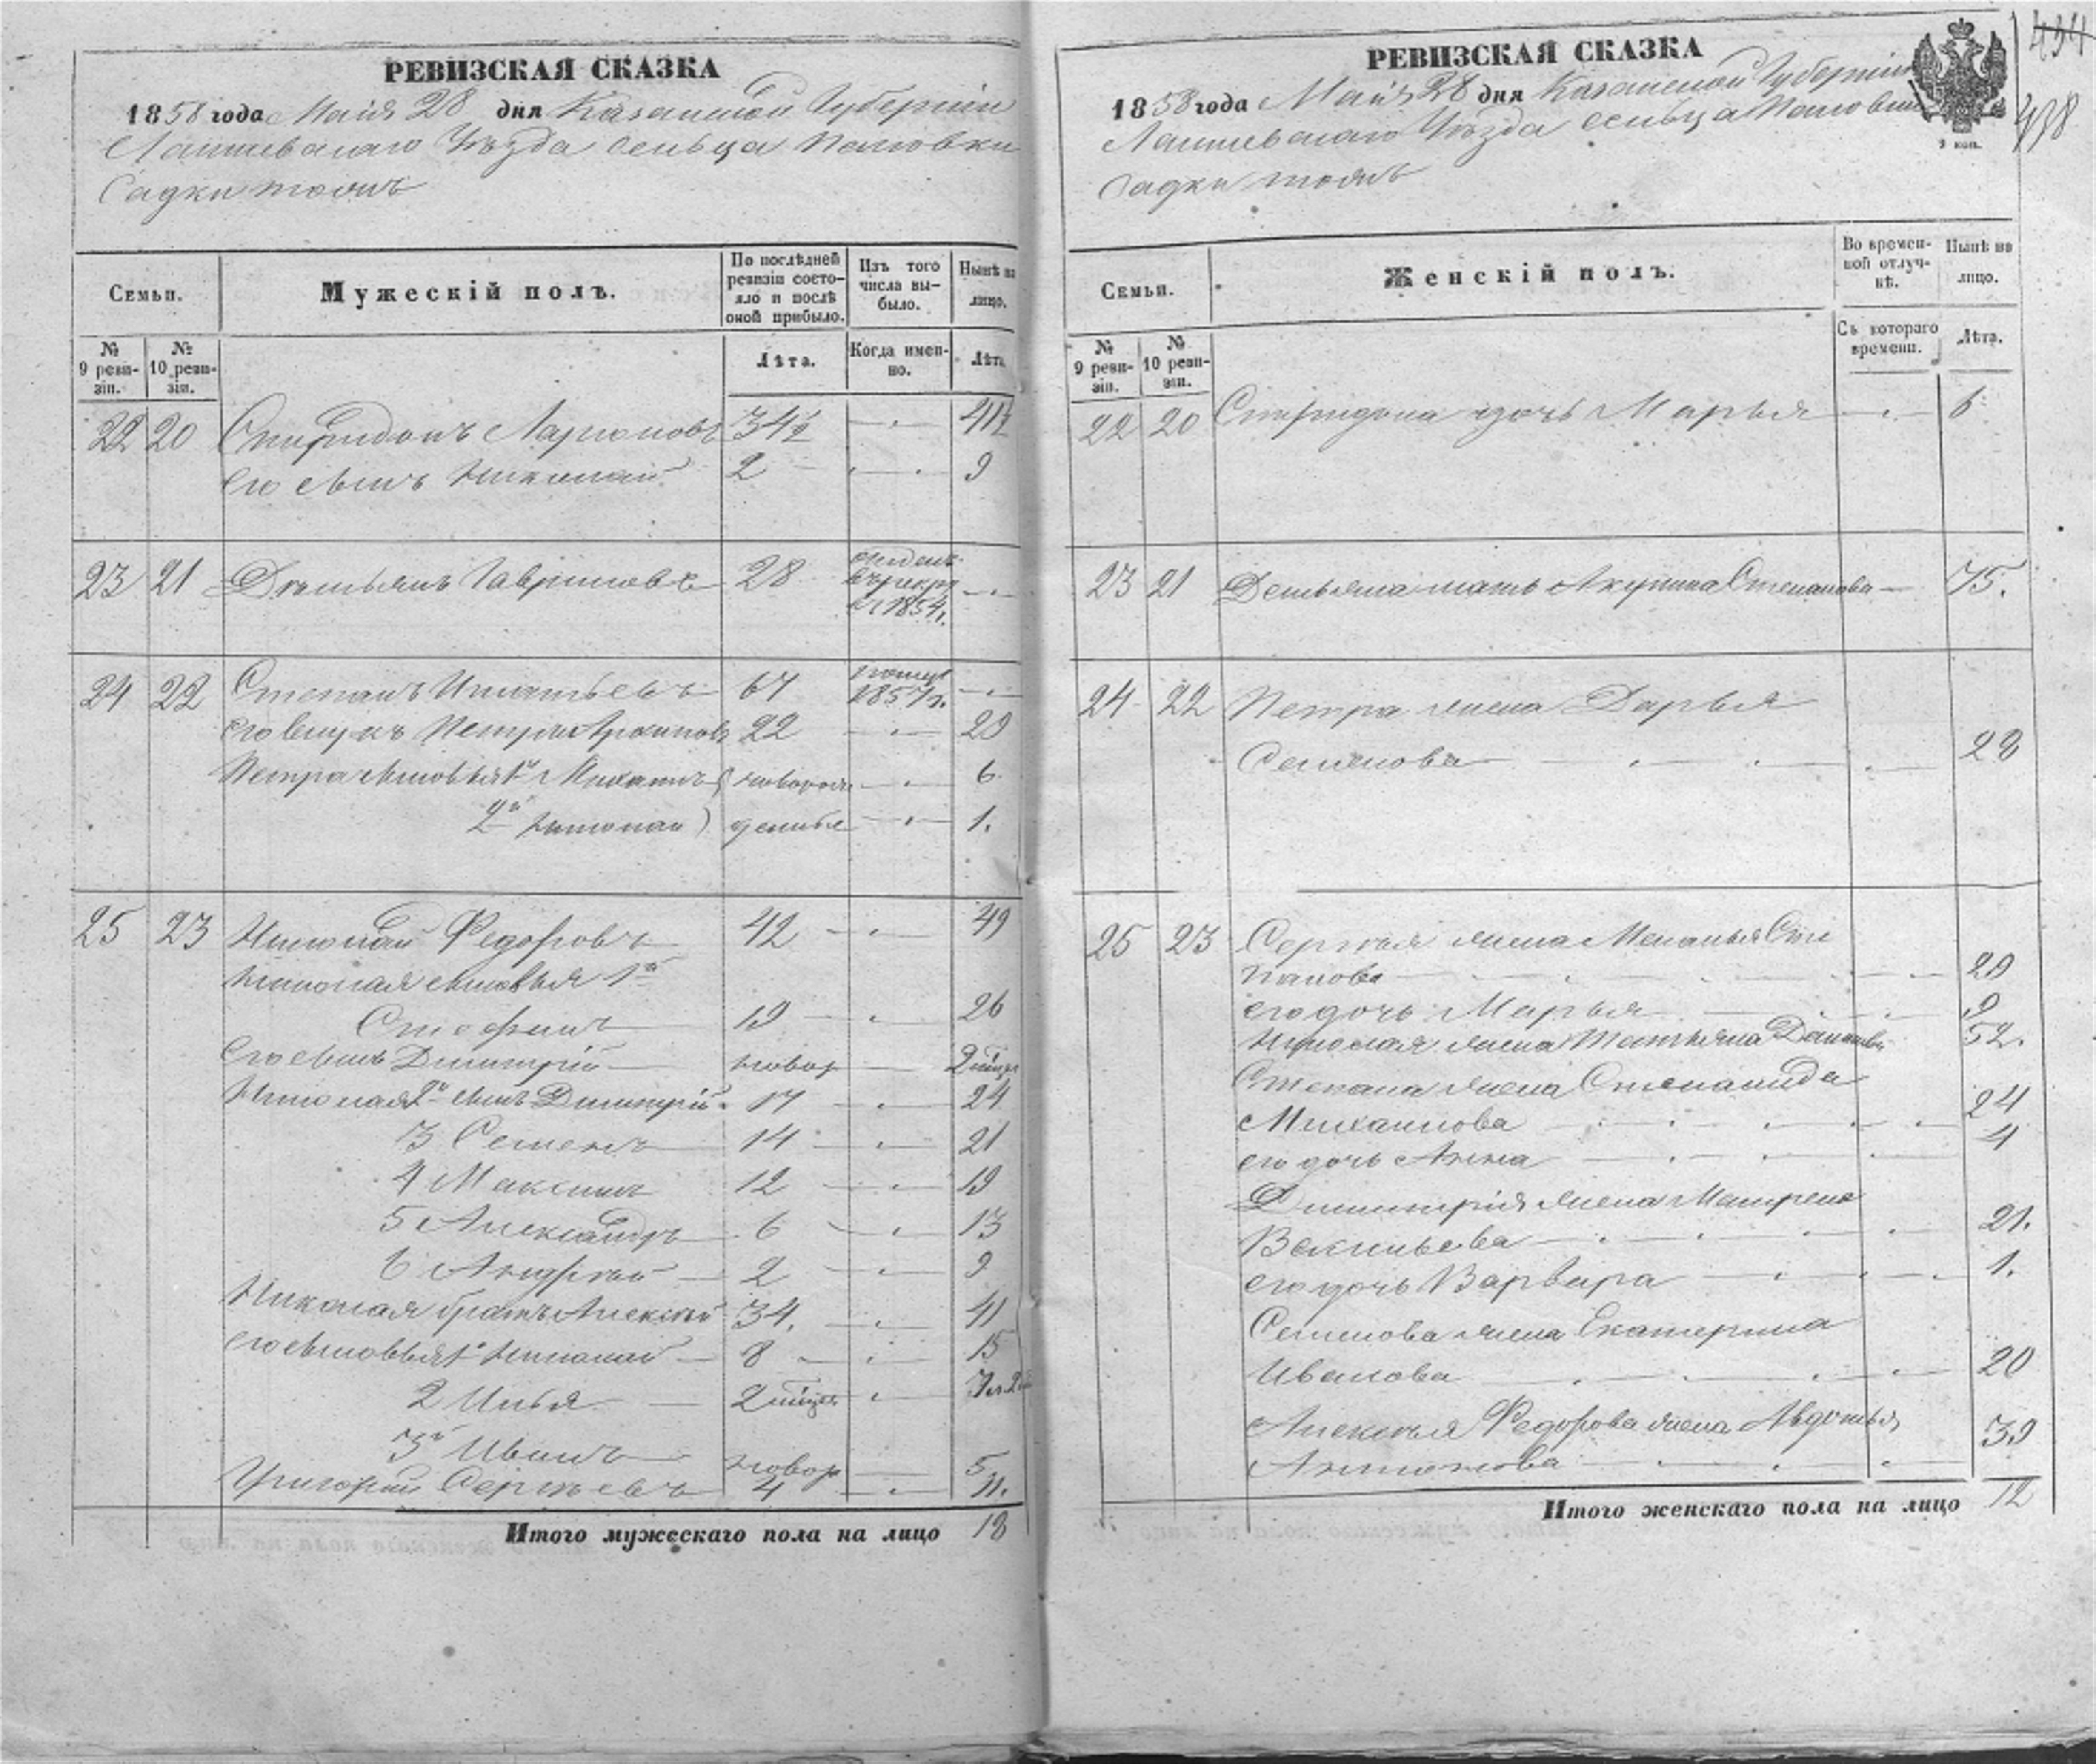 РЕВИЗСКАЯ СКАЗКА
1858 года Маія 28 дня Казанской Губерніи
Лаишевскаго Уѣзда сельца Поповки
Садки тожъ
Семьи.
Мужескій полъ.
По послѣдней ревизіи состояло и послѣ оной прибыло.
Изъ того числа выбыло.
Нынѣ на лицо.
№ 9 ревизіи.
№ 10 ревизіи.
Лѣта.
Когда именно.
Лѣта.
22 20 Спиридонъ Ларіоновъ 34½ 41½
его сынъ Николай 2 9
23 21 Демьянъ Гавриловъ 28 отданъ въ рекру 1854г.
24 22 Степанъ Игнатьевъ 67 1857г.
его внукъ Петръ Архиповъ 22 29
Петра сыновья 1й Михаилъ новорож 6
2й Николай денные 1.
25 23 Николай Федоровъ 42 49
Николая сыновья 1й
Стефанъ 19 26
Его сынъ Димитрій новор 2
Николая 2й сынъ Димитрій 17 24
3 Семенъ 14 21
4 Максимъ 12 19
5 Александръ 6 13
6 Андрей 2 9
Николая братъ Алексѣй 34. 41
его сыновья 1й Николай 8 15
2 Илья 2 7
3й Иванъ новор 5
Григорій Сергѣевъ 4 11.
Итого мужескаго пола на лицо 18
РЕВИЗСКАЯ СКАЗКА
434
438
1858 года Маія 28 дня Казанской Губерніи
Лаишевскаго Уѣзда сельца Поповки
Садки тожъ
Семьи.
Женскій полъ.
Во временной отлучкѣ.
Нынѣ на лицо.
№ 9 ревизіи.
№ 10 ревизіи.
Съ котораго времени.
Лѣта.
22 20 Спиридона дочь Марья 6
23 21 Демьяна мать Акулина Степанова 75.
24 22 Петра жена Дарья
Семенова 28
25 23 Сергѣя жена Меланья Сте
панова 29
его дочь Марья 9
Николая жена Татьяна 52.
Степана жена Степанида
Михаилова 24
его дочь Анна 4
Димитрія жена Матрена
Васильева 21.
его дочь Варвара 1.
Семенова жена Екатерина
Иванова 20
Алексѣя Федорова жена Авдотья
Антонова 39
Итого женскаго пола на лицо 12